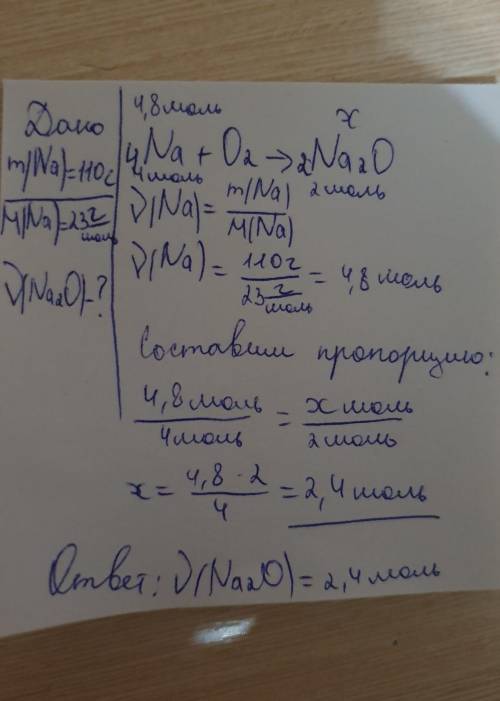 Дано
m(Na)=110г
M(Na)=23г/моль
ν(Na₂O)-?
4,8моль
x
4Na + O₂ → 2Na₂O
4моль
2моль
ν(Na)= m(Na)/M(Na)
ν(Na)= 110г/23г/моль = 4,8 моль
Составим пропорцию:
4,8моль/4моль = x моль/2моль
x= 4,8·2/4 = 2,4моль
Ответ: ν(Na₂O)=2,4моль